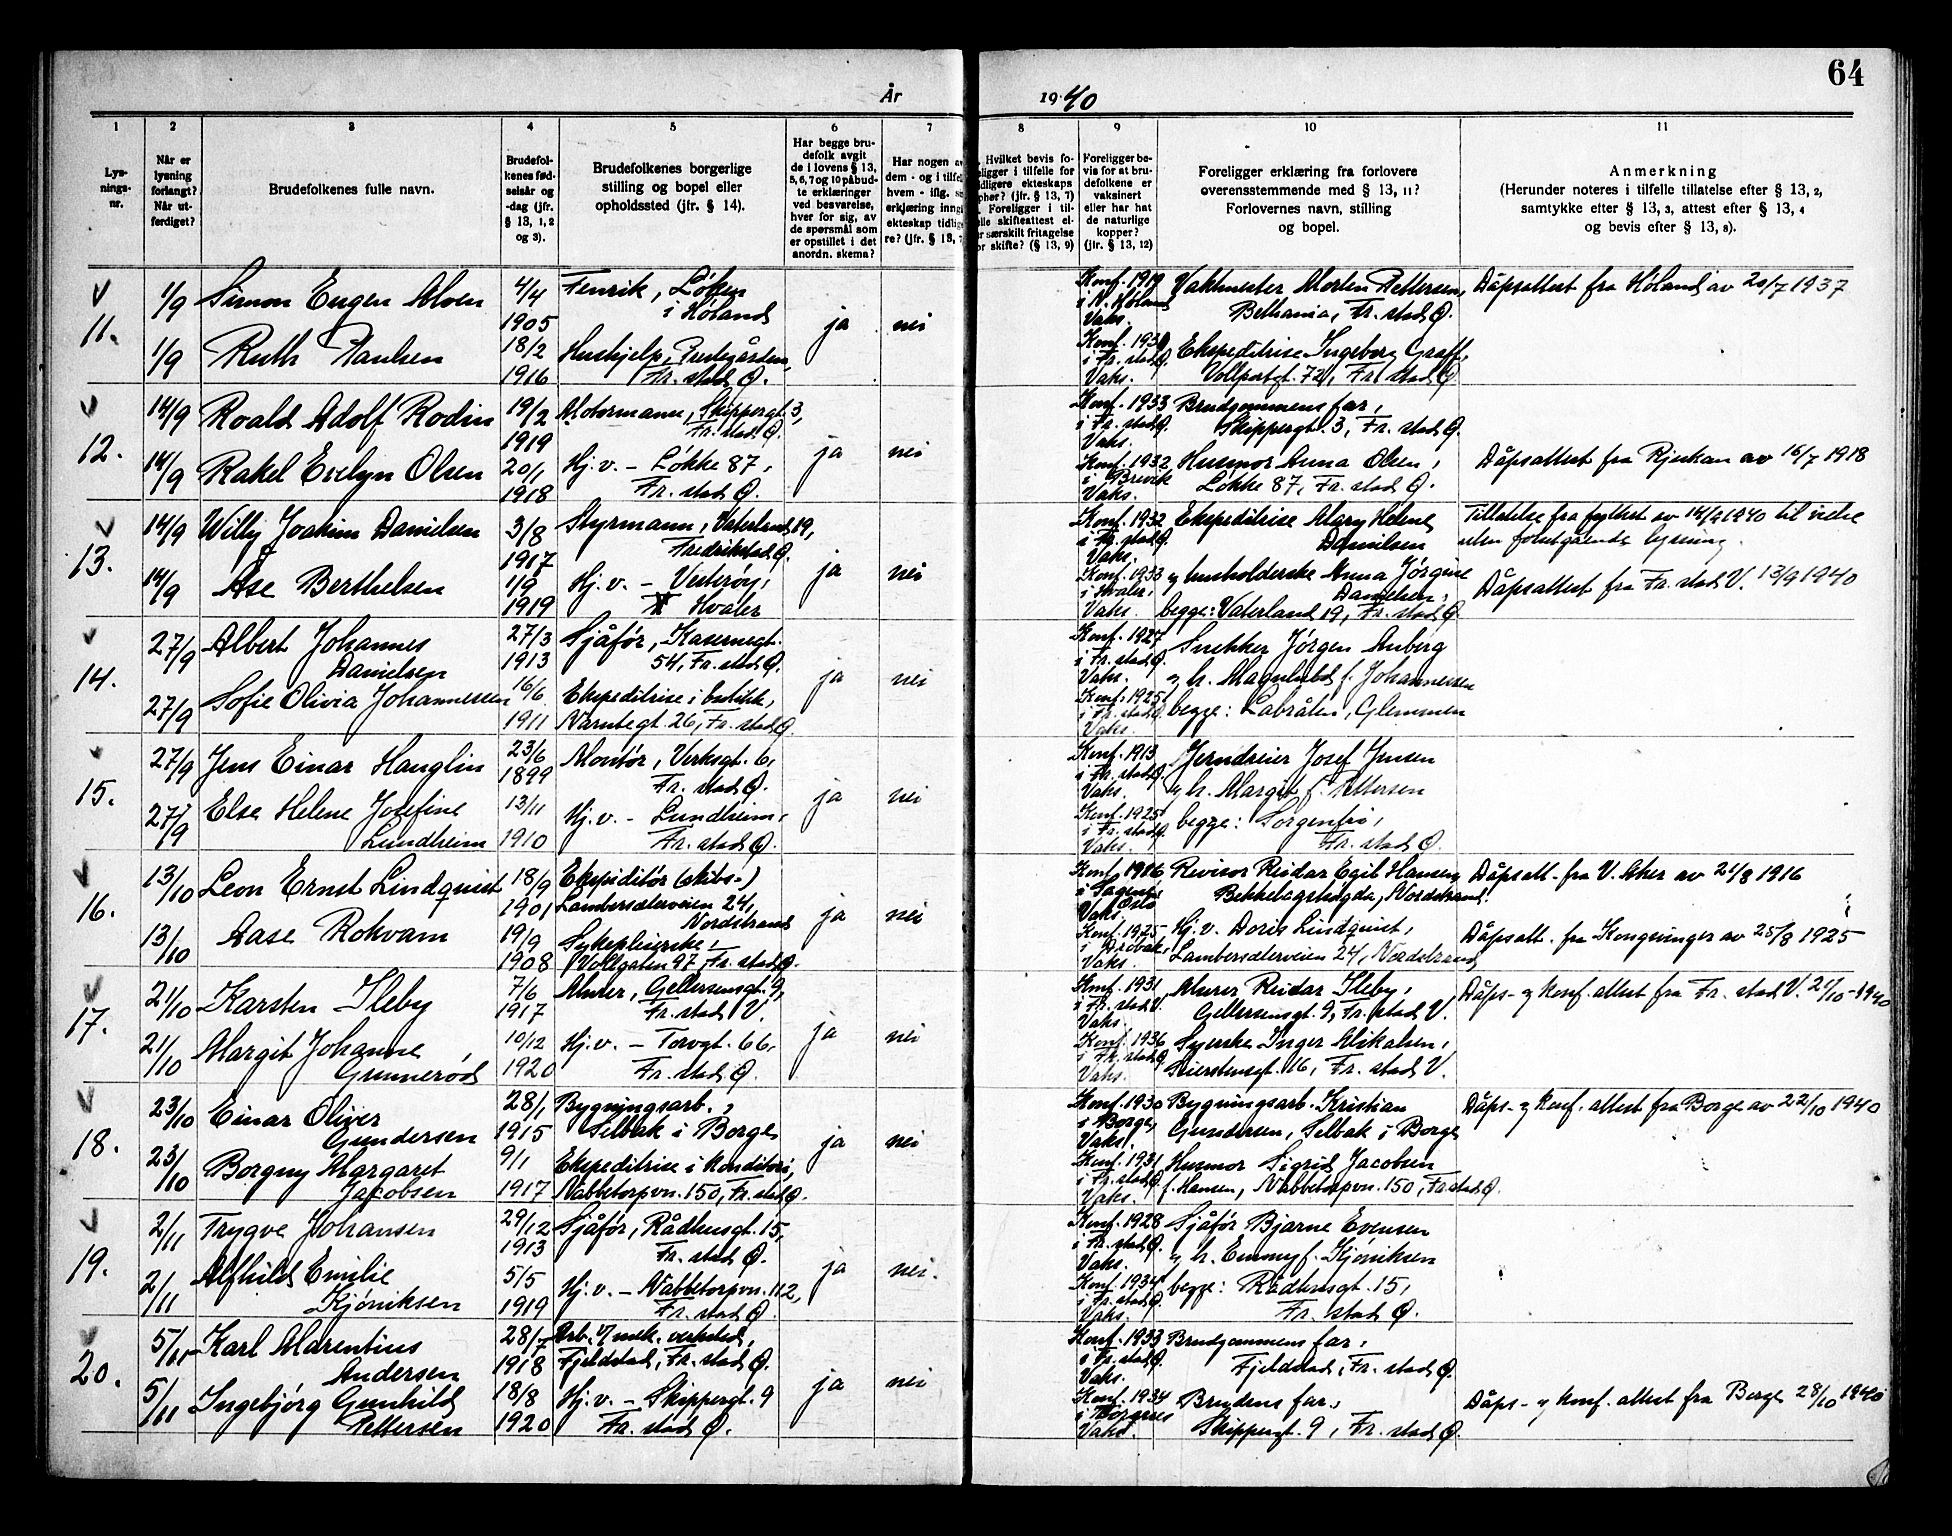 64
År 1940
1 2 3 4 5 6 7 8 9 10 11
Lys-
nings-
nr.
Når er
lysning
forlangt?
Når ut-
ferdiget?
Brudefolkenes fulle navn.
Brudefol-
kenes fød-
selsår og
-dag (jfr.
§ 13, 1, 2
og 3).
Brudefolkenes borgerlige
stilling og bopel eller
opholdssted (jfr. § 14).
Har begge bru-
defolk avgit
de i lovens § 13,
5, 6, 7 og 10 påbud-
te erklæringer
ved besvarelse,
hver for sig, av
de spørsmål som
er opstillet i det
anordn. skema?
Har nogen av
dem - og i tilfel
hvem - iflg.
erklæring inng
ekteskap tidlig
re? (jfr. § 13,
Hvilket bevis fo-
ligger i tilfelle for
dligere ekteskaps
phør? (jfr. § 13, 7)
Foreligger i til-
lle skifteattest el-
r særskilt fritagelse
or skifte? (§ 13, 9)
Foreligger be-
vis for at bru-
defolkene er
vaksinert
eller har hat
de naturlige
kopper?
(jfr. § 13, 12)
Foreligger erklæring fra forlovere
overensstemmende med § 13, 11?
Forlovernes navn, stilling
og bopel.
Anmerkning
(Herunder noteres i tilfelle tillatelse efter § 13, 2,
samtykke efter § 13, 3, attest efter § 13, 4
og bevis efter § 13, 8).
11.
1/9 Simon Eugen Moen 4/4 1905 Fenrik, Löken
i Höland
ja nei
Konf. 1919
i N. Höland
Vaks.
Vaktmester Morten Pettersen,
Bethania, Fr.stad Ø.
Dåpsattest fra Höland av 20/7 1937
1/9 Ruth Paulsen 18/2 1916 Hushjelp, Prestegården,
Fr.stad Ø.
Konf. 1930
i Fr.stad Ø.
Vaks.
Ekspeditrise Ingeborg Graff,
Vollportgt. 72, Fr.stad Ø
12.
14/9 Roald Adolf Rodin 19/2 1919 Motormann, Skippergt. 3,
Fr.stad Ø.
ja nei
Konf. 1933
i Fr.stad Ø.
Vaks.
Brudgommens far,
Skippergt. 3, Fr.stad Ø.
14/9 Rakel Evelyn Olsen 20/1 1918 Hj.v. - Lökke 87,
Fr.stad Ø.
Konf. 1932
i Brevik
Vaks.
Husmor Anna Olsen,
Lökke 87, Fr.stad Ø.
Dåpsattest fra Rjukan av 16/7 1918
13.
14/9 Willy Joakim Danielsen 3/8 1917 Styrmann, Vaterland 19,
Fredrikstad Ø.
ja nei
Konf. 1932
i Fr.stad Ø.
Vaks.
Ekspeditrise Mary Helene
Danielsen
Tillatelse fra fylket av 14/9 1940 til vielse
uten forutgående lysning.
14/9 Åse Berthelsen 1/9 1919 Hj.v. - Vesteröy,
Hvaler
Konf. 1933
i Hvaler,
Vaks.
og husholderske Anna Jörgine
Danielsen,
begge: Vaterland 19, Fr.stad Ø.
Dåpsattest fra Fr.stad V. 13/9 1940
14.
27/9 Albert Johannes
Danielsen
27/3 1913 Sjåför, Kasernegt.
54, Fr.stad Ø.
ja nei
Konf. 1927
i Fr.stad Ø.
Vaks.
Snekker Jörgen Auberg
27/9 Sofie Olivia Johannessen 16/6 1911 Ekspeditrise i butikk,
Narntegt. 26, Fr.stad Ø
Konf. 1925
i Fr.stad Ø.
Vaks.
og h. Magnhild f. Johannessen
begge: Labråten, Glemmen
15.
27/9 Jens Einar Hauglin 23/6 1899 Montör, Verksgt. 6,
Fr.stad Ø.
ja nei
Konf. 1913
i Fr.stad Ø.
Vaks.
Jerndreier Josef Jensen
og h. Margit f. Pettersen
27/9 Else Helene Josefine
Lundheim
13/11 1910 Hj.v. - Lundheim,
Fr.stad Ø.
Konf. 1925
i Fr.stad Ø.
Vaks.
begge: Sorgenfri,
Fr.stad Ø.
16.
13/10 Leon Ernst Lindquist 18/9 1901 Ekspeditör (skibs-)
Lambersæterveien 24,
Nordstrand
ja nei
Konf. 1916
i Sagene,
Oslo
Vaks.
Revisor Reidar Egil Hansen,
Bekkelagshögda, Nordstrand.
Dåpsatt. fra V. Aker av 21/8 1916
13/10 Aase Rokvam 19/9 1908 Sykepleierske,
Vollgaten 97, Fr.stad Ø.
Konf. 1925
i Dröbak,
Vaks.
Hj.v. Doris Lindquist,
Lambersæterveien 24, Nordstrand
Dåpsatt. fra Kongsvinger av 25/8 1925
17.
21/10 Karsten Ileby 7/6 1917 Murer, Gellersensgt. 9,
Fr.stad V.
ja nei
Konf. 1931
i Fr.stad V.
Vaks.
Murer Reidar Ileby,
Gellersensgt. 9, Fr.stad V.
Dåps- og konf.attest fra Fr.stad V. 21/10-1940
21/10 Margit Johanne
Gunneröd
10/12 1920 Hj.v. - Torvgt. 66,
Fr.stad Ø.
Konf. 1936
i Fr.stad Ø
Vaks.
Syerske Inger Mikalsen,
16, Fr.stad V.
18.
23/10 Einar Oliver
Gundersen
28/1 1915 Bygningsarb.,
Selbak i Borge
ja nei
Konf. 1930
i Borge,
Vaks.
Bygningsarb. Kristian
Gundersen, Selbak i Borge
Dåps- og konf.attest fra Borge av 22/10 1940
23/10 Borgny Margaret
Jacobsen
9/1 1917 Ekspeditrise i konditori,
Nabbetorpvn. 150, Fr.stad Ø.
Konf. 1931
i Fr.stad Ø.
Vaks.
Husmor Sigrid Jacobsen
f. Hansen, Nabbetorpvn. 150, Fr.stad Ø.
19.
2/11 Trygve Johansen 29/12 1913 Sjåför, Rådhusgt. 15,
Fr.stad Ø.
ja nei.
Konf. 1928
i Fr.stad Ø.
Vaks.
Sjåför Bjarne Evensen
og h. Emmy f. Kjöniksen
2/11 Alfhild Emilie
Kjöniksen
5/5 1919 Hj.v. - Nabbetorpvn. 112,
Fr.stad Ø.
Konf. 1934
i Fr.stad Ø.
Vaks.
begge: Rådhusgt. 15,
Fr.stad Ø.
20.
5/11 Karl Marentius
Andersen
28/7 1918 Arb. v/ mek. verksted,
Fjeldstad, Fr.stad Ø.
ja nei
Konf. 1933
i Fr.stad Ø.
Vaks.
Brudgommens far,
Fjeldstad, Fr.stad Ø.
5/11 Ingebjörg Gunhild
Pettersen
18/8 1920 Hj.v. - Skippergt. 9
Fr.stad Ø.
Konf. 1934
i Torsnes
Vaks.
Brudens far,
Skippergt. 9, Fr.stad Ø.
Dåps- og konf.attest fra Borge 28/10 1940